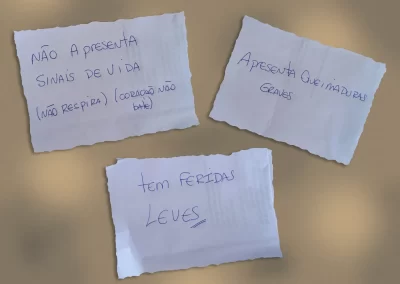 NÃO APRESENTA
SINAIS DE VIDA
(NÃO RESPIRA) (CORAÇÃO NÃO
BATE)
APRESENTA QUEIMADURAS
GRAVES
TEM FERIDAS
LEVES